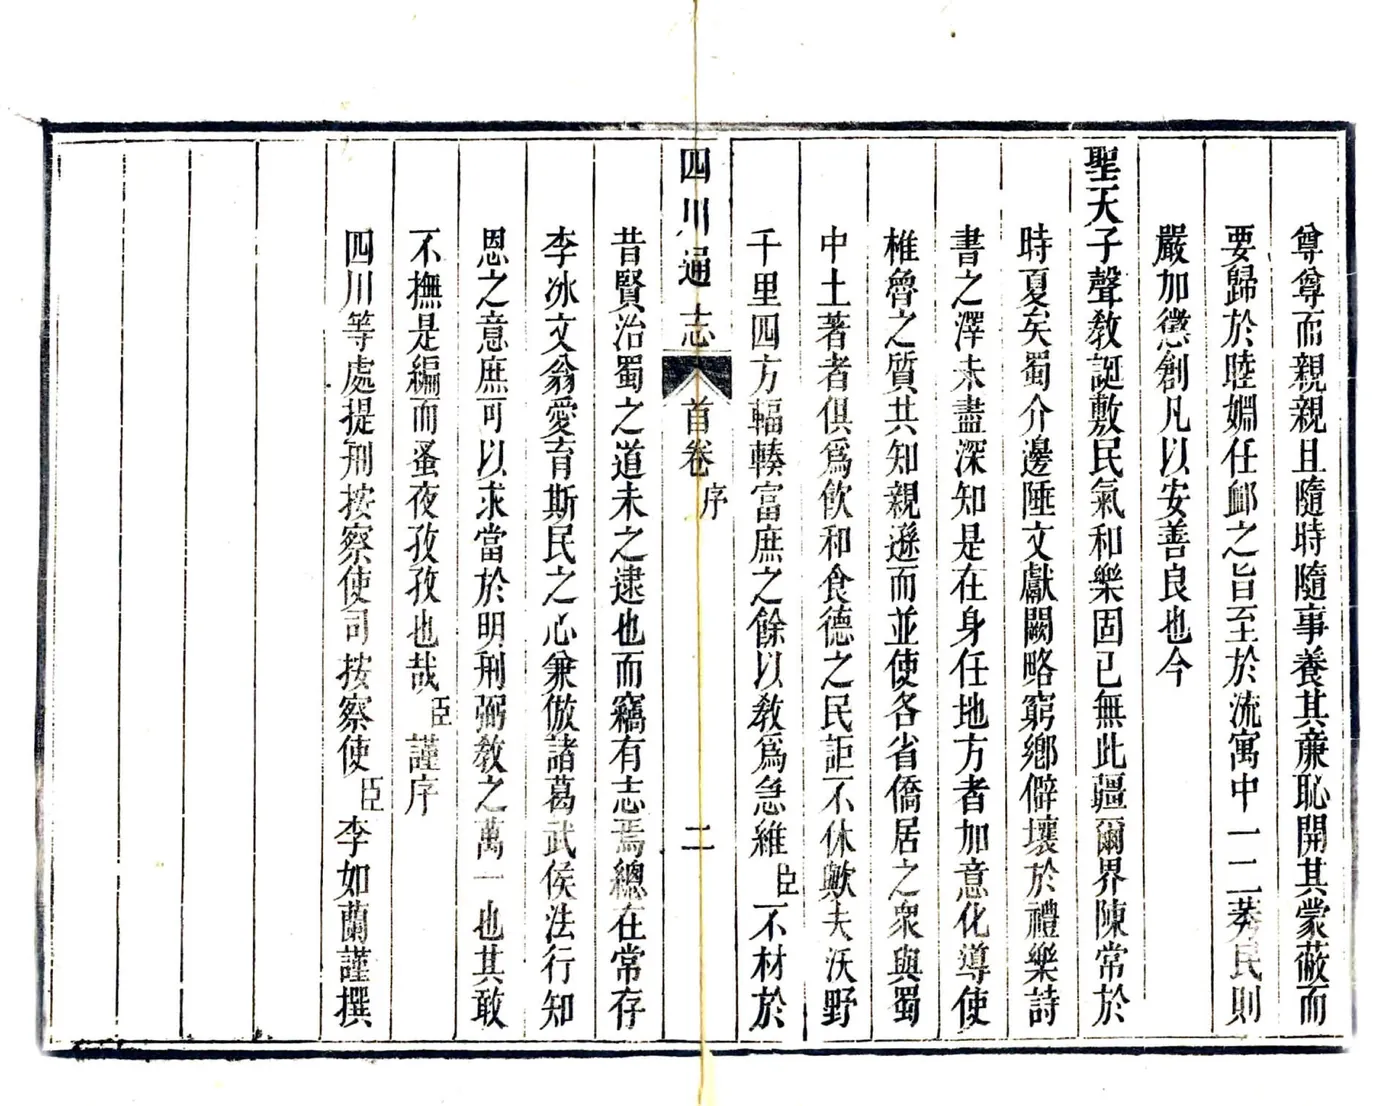 尊尊而親親且隨時隨事養其亷恥開其蒙蔽而
要歸於睦婣任䘏之旨至於流寓中一二莠民則
嚴加懲創凡以安善良也今
聖天子聲敎誕敷民氣和樂固已無此疆爾界陳常於
時夏矣蜀介邊陲文獻闕略窮鄉僻壤於禮樂詩
書之澤未盡深知是在身任地方者加意化導使
椎魯之質共知親遜而並使各省僑居之衆與蜀
中土著者俱爲飮和食德之民詎不休歟夫沃野
千里四方輻輳富庶之餘以敎爲急維臣不材於
四川通志 首卷 序 二
昔賢治蜀之道未之逮也而竊有志焉總在常存
李冰文翁愛育斯民之心兼倣諸葛武侯法行知
恩之意庶可以求當於明刑弼敎之萬一也其敢
不撫是編而蚤夜孜孜也哉臣謹序
四川等處提刑按察使司按察使臣李如蘭謹撰